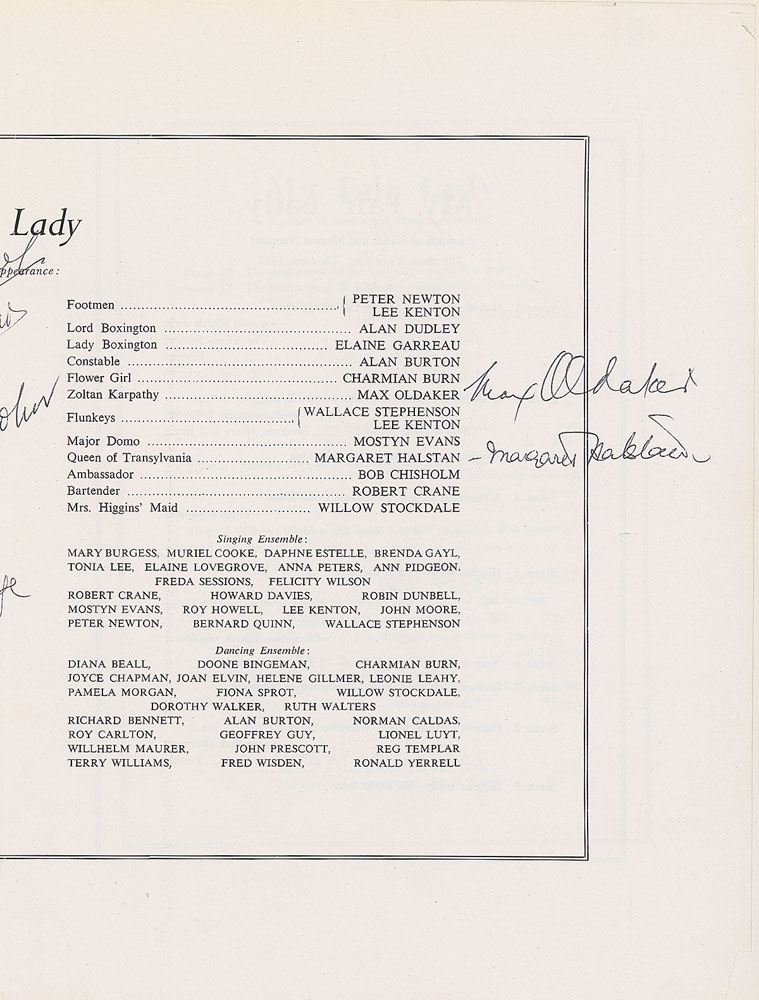 Lady
appearance:
Footmen ........ { PETER NEWTON
LEE KENTON
Lord Boxington ........ ALAN DUDLEY
Lady Boxington ........ ELAINE GARREAU
Constable ........ ALAN BURTON
Flower Girl ........ CHARMIAN BURN
Zoltan Karpathy ........ MAX OLDAKER Max Oldaker
Flunkeys ........ { WALLACE STEPHENSON
LEE KENTON
Major Domo ........ MOSTYN EVANS
Queen of Transylvania ........ MARGARET HALSTAN - Margaret Halstan
Ambassador ........ BOB CHISHOLM
Bartender ........ ROBERT CRANE
Mrs. Higgins' Maid ........ WILLOW STOCKDALE
Singing Ensemble:
MARY BURGESS, MURIEL COOKE, DAPHNE ESTELLE, BRENDA GAYL,
TONIA LEE, ELAINE LOVEGROVE, ANNA PETERS, ANN PIDGEON,
FREDA SESSIONS, FELICITY WILSON
ROBERT CRANE, HOWARD DAVIES, ROBIN DUNBELL,
MOSTYN EVANS, ROY HOWELL, LEE KENTON, JOHN MOORE,
PETER NEWTON, BERNARD QUINN, WALLACE STEPHENSON
Dancing Ensemble:
DIANA BEALL, DOONE BINGEMAN, CHARMIAN BURN,
JOYCE CHAPMAN, JOAN ELVIN, HELENE GILLMER, LEONIE LEAHY,
PAMELA MORGAN, FIONA SPROT, WILLOW STOCKDALE,
DOROTHY WALKER, RUTH WALTERS
RICHARD BENNETT, ALAN BURTON, NORMAN CALDAS,
ROY CARLTON, GEOFFREY GUY, LIONEL LUYT,
WILLHELM MAURER, JOHN PRESCOTT, REG TEMPLAR
TERRY WILLIAMS, FRED WISDEN, RONALD YERRELL